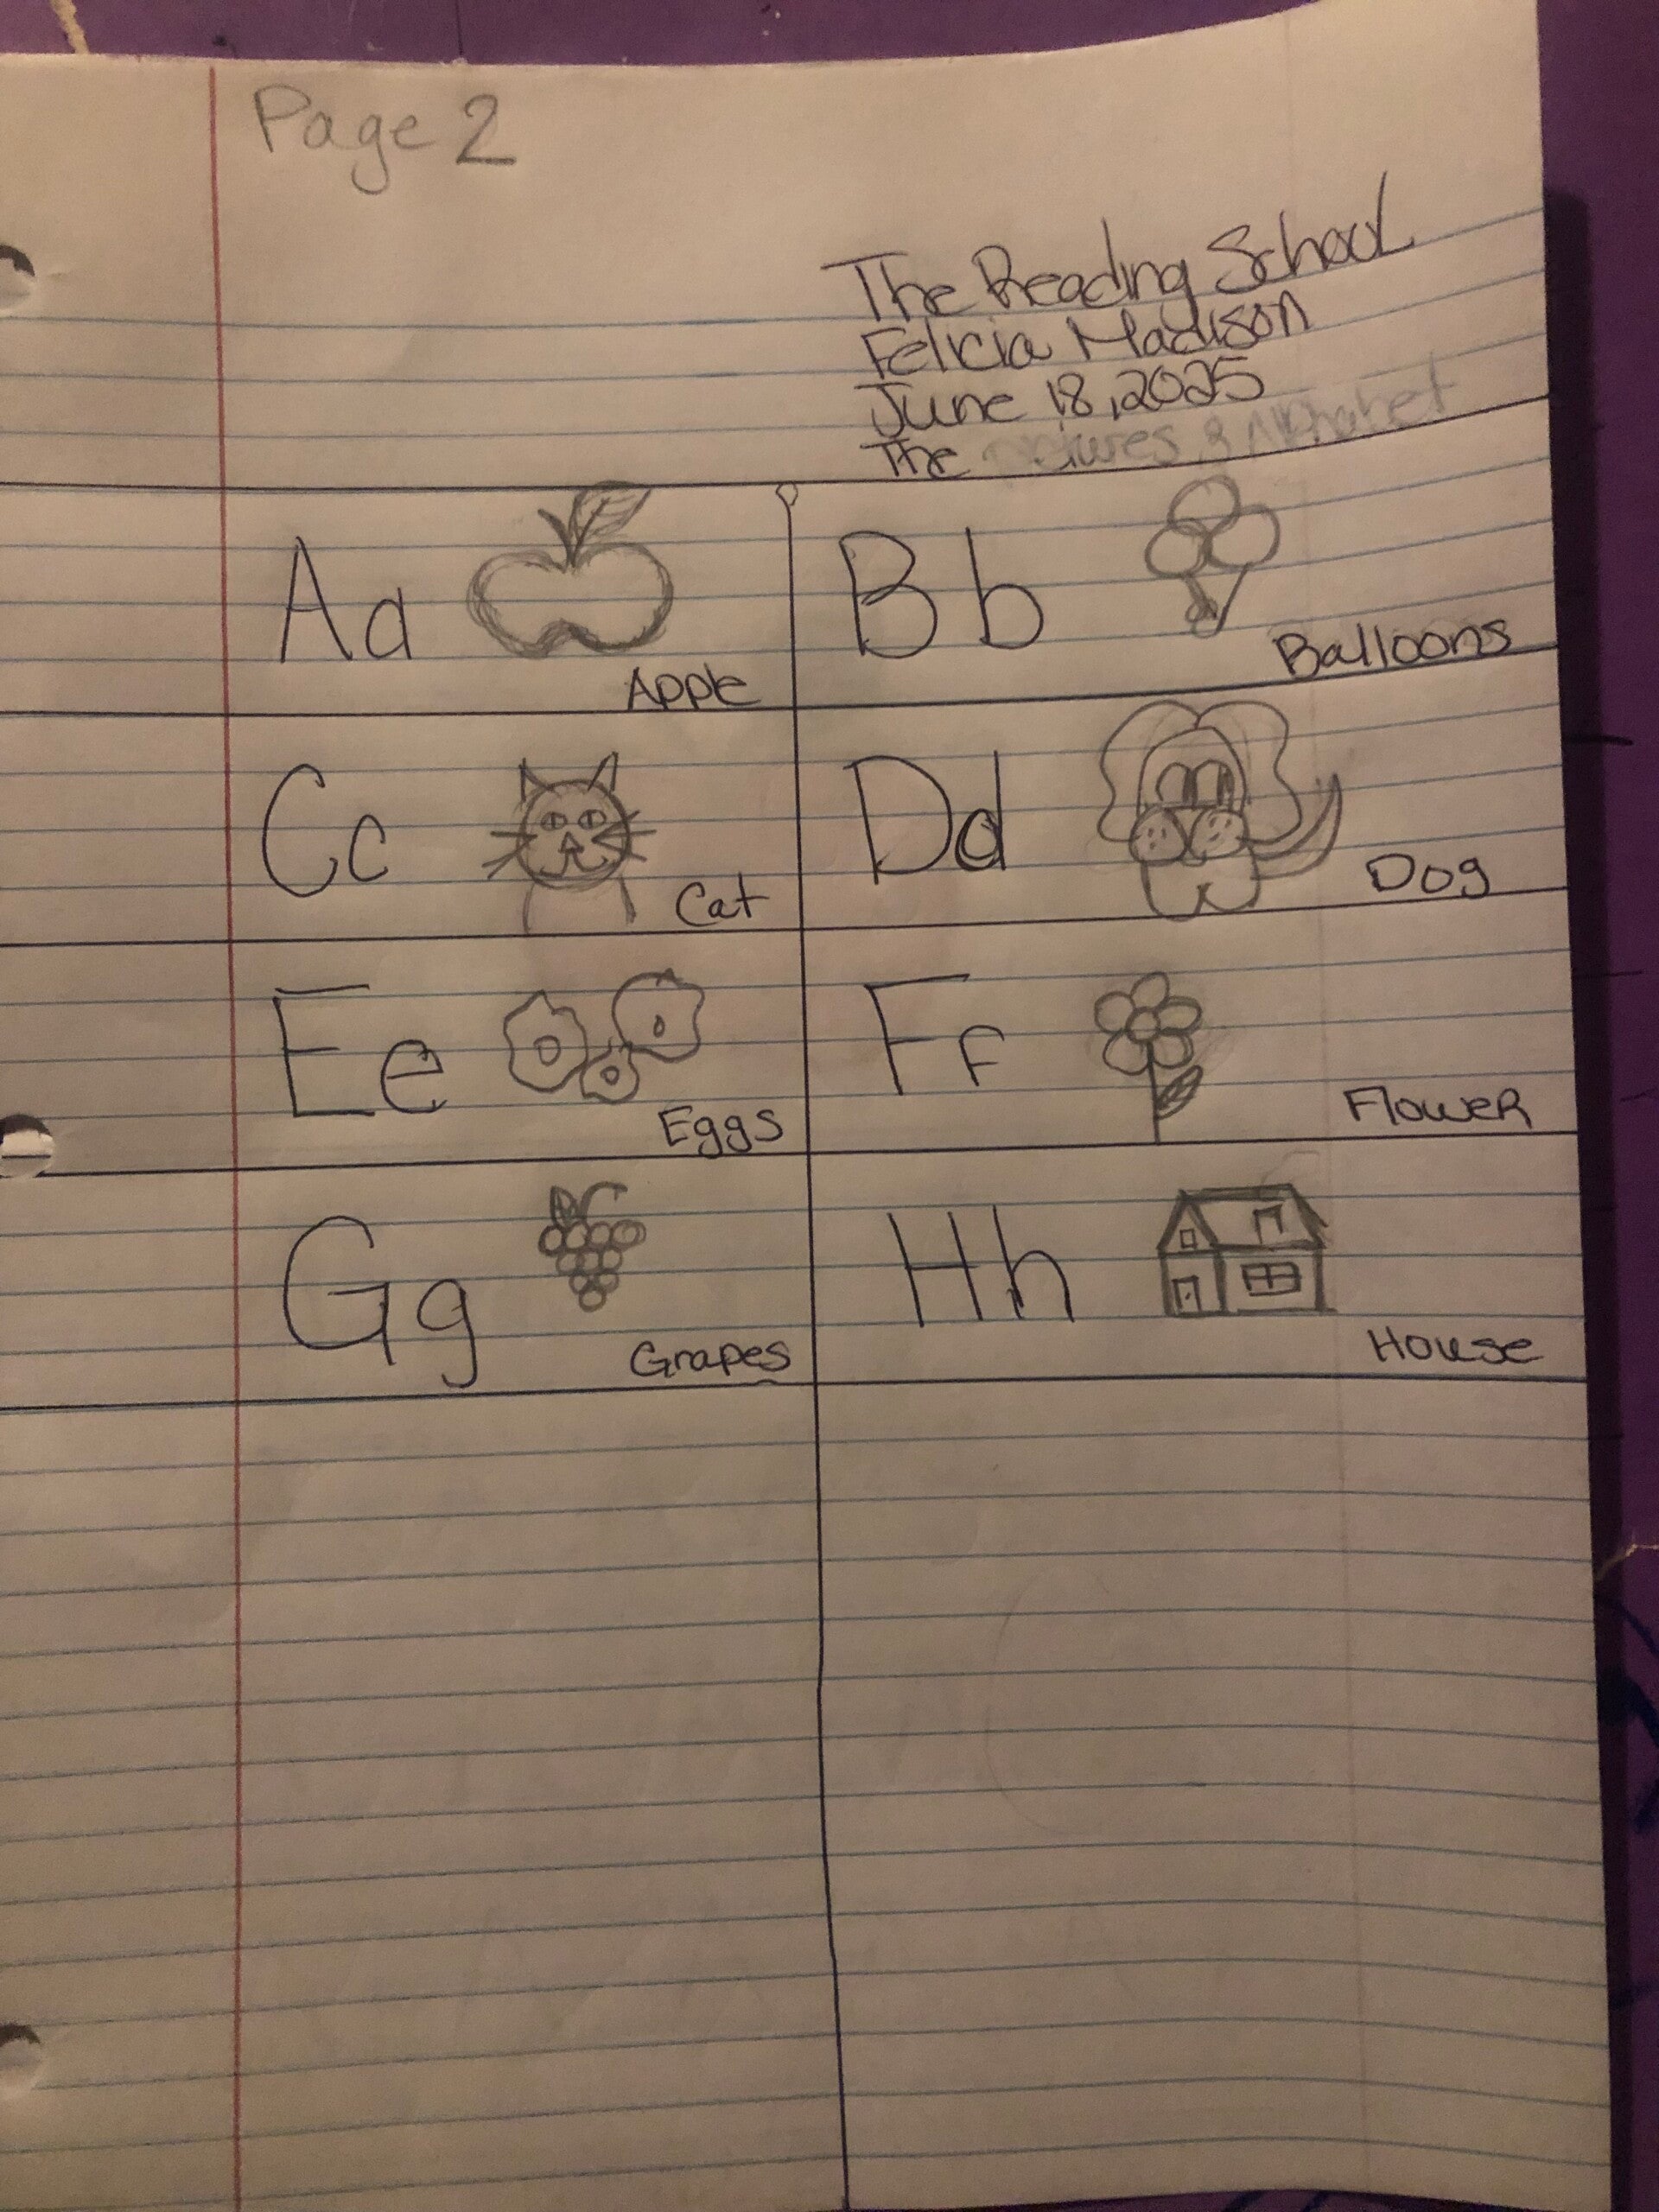 Page 2
The Reading School
Felicia Madison
June 18, 2025
The Pictures & Alphabet
Aa
Apple
Bb
Balloons
Cc
Cat
Dd
Dog
Ee
Eggs
Ff
Flower
Gg
Grapes
Hh
House